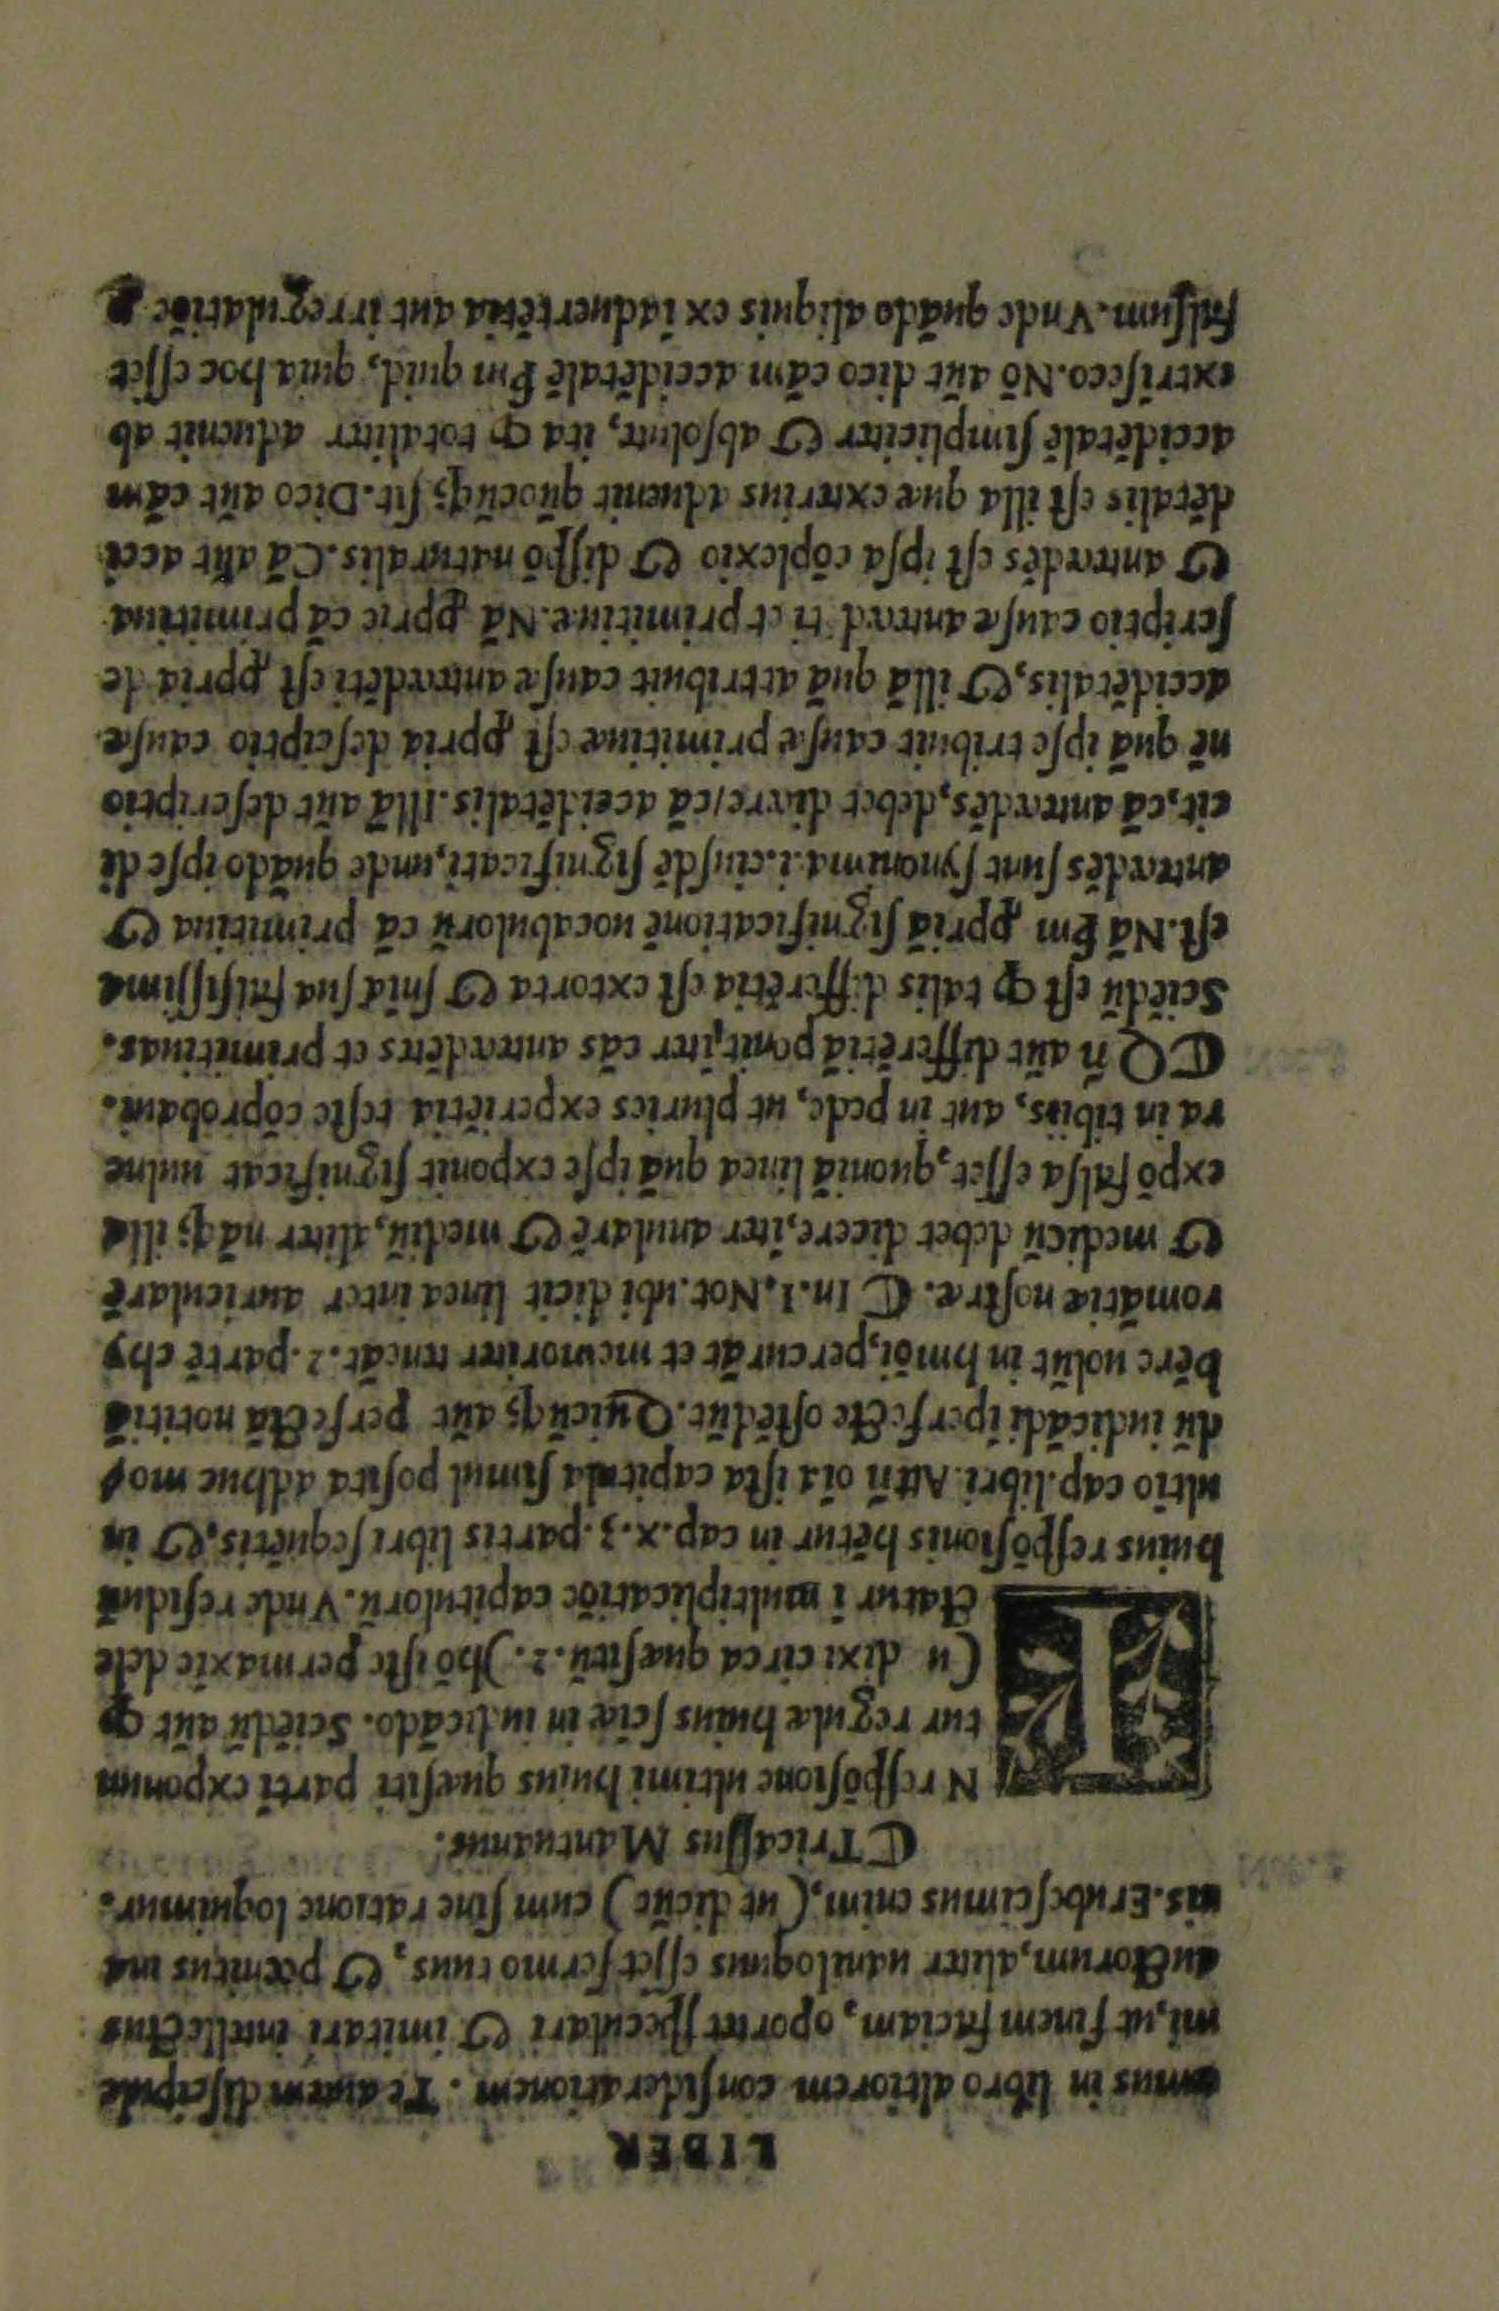 LIBER
emus in libro altiorem considerationem. Te autem discipule
mi, ut finem faciam, oportet speculari & imitari intellectus
auctorum, aliter uaniloquus esset sermo tuus, & pœnitus ina
nis. Erubescimus enim, (ut dicũt) cum sine ratione loquimur.
❡ Tricassus Mantuanus.
IN respõsione ultimi huius quæsiti parti exponun
tur regulæ huius sciæ in iudicãdo. Sciẽdũ aũt ꝙ
(ut dixi circa quæsitũ.2.) hõ iste permaxie dele
ctatur ĩ multiplicatiõe capitulorũ. Vnde residuũ
huius respõsionis hẽtur in cap.x.3.partis libri sequẽtis, & in
ultĩo cap.libri. Attñ oĩa ista capitula simul posita adhuc mo
dũ iudicãdi ĩperfecte ostẽdũt. Quicũqꝫ aũt perfectã notitiã
hẽre uolũt in hmõi, percurãt et memoriter teneãt.2.partẽ chy
romãtiæ nostræ. ❡ In.1.Not.ubi dicit linea inter auricularẽ
& mediũ debet dicere, iter anularẽ & mediũ, aliter nãqꝫ illa
expõ falsa esset, quoniã linea quã ipse exponit significat uulne
ra in tibijs, aut in pede, ut pluries experiẽtia teste cõprobaui.
❡ Qñ aũt differẽtiã ponit, iter cãs antecedẽtes et primitiuas.
Sciẽdũ est ꝙ talis differẽtia est extorta & sñia sua falsissima
est. Nã ẜm ꝓpriã significationẽ uocabulorũ cã primitiua &
antecedẽs sunt synonyma.i.eiusdẽ significati, unde quãdo ipse di
cit, cã antecedẽs, debet dicere, cã accidẽtalis. Illa aũt descriptio
nẽ quã ipse tribuit causæ primitiuæ est ꝓpria descriptio causæ
accidẽtalis, & illã quã attribuit causæ antecedẽti est ꝓpria de
scriptio causæ anteced.ti et primitiuæ. Nã ꝓprie cã primitiua
& antecedẽs est ipsa cõplexio & dispõ naturalis. Cã aũt acci
dẽtalis est illa quæ exterius aduenit quocũqꝫ sit. Dico aũt cãm
accidẽtalẽ simpliciter & absolute, ita ꝙ totaliter aduenit ab
extrĩseco. Nõ aũt dico cãm accidẽtalẽ ẜm quid, quia hoc esset
falsum. Vnde quãdo aliquis ex ĩaduertẽtia aut irregulatiõe